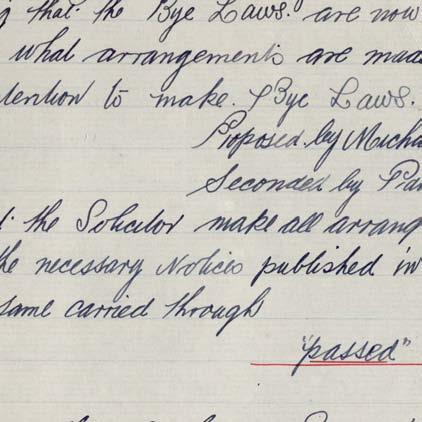 that the Bye Laws. are now
what arrangements are made
tention to make. Bye Laws.
Proposed by Micha
Seconded by Pa
the Solicitor make all arrang
the necessary Notices published in
same carried through
"passed"